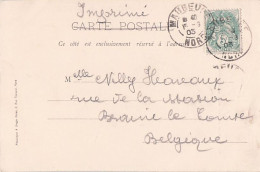 Imprimé
CARTE POSTALE
Ce côté est exclusivement réservé à l'adresse
MAUBEUGE
NORD
Melle Nelly Havaux
rue de la Station
Braine le Comte
Belgique